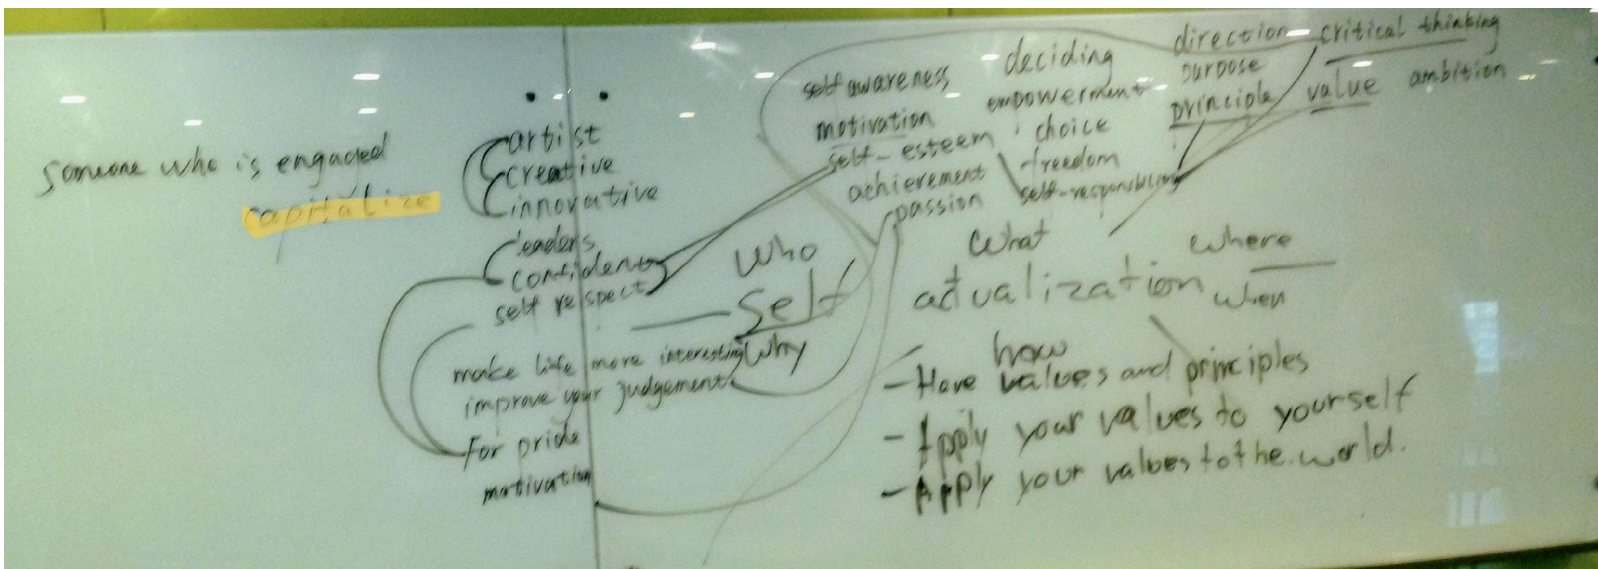 Someone who is engaged
capitalize
artist
creative
innovative
leaders
confident
self respect
make life more interesting
improve your judgement
For pride
motivation
Who
Self
Why
self awareness
motivation
self-esteem
achievement
passion
deciding
empowerment
choice
freedom
self-responsibility
direction critical thinking
purpose
principle value ambition
What
where
actualization
when
how
- Have values and principles
- Apply your values to yourself
- Apply your values to the world.